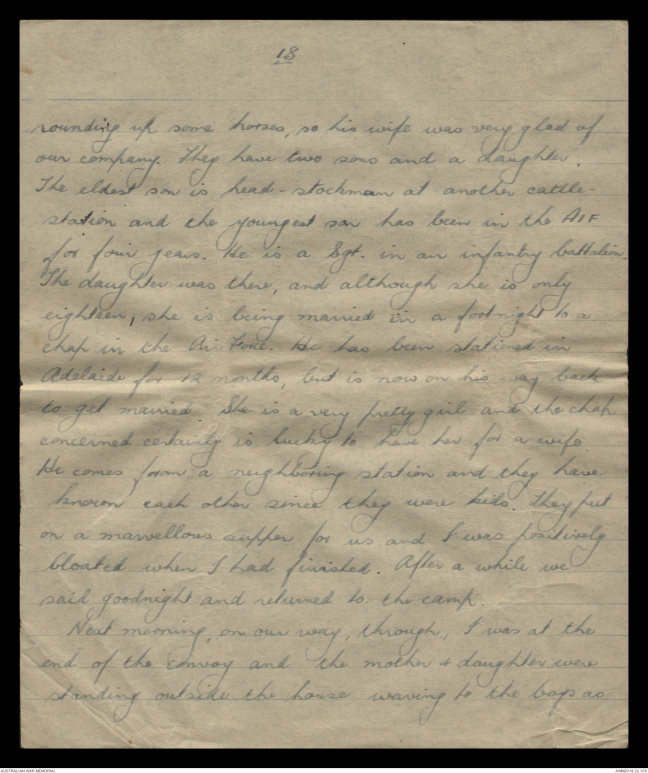 18
rounding up some horses, so his wife was very glad of
our company. They have two sons and a daughter.
The eldest son is head-stockman at another cattle-
station and the youngest son has been in the AIF
for four years. He is a Sgt. in an infantry battalion.
The daughter was there, and although she is only
eighteen, she is being married in a fortnight to a
chap in the Air Force. He has been stationed in
Adelaide for 12 months, but is now on his way back
to get married. She is a very pretty girl and the chap
concerned certainly is lucky to have her for a wife.
He comes from a neighboring station and they have
known each other since they were kids. They put
on a marvellous supper for us and I was positively
bloated when I had finished. After a while we
said goodnight and returned to the camp.
Next morning, on our way, through, I was at the
end of the convoy and the mother & daughter were
standing outside the house waving to the boys as
AUSTRALIAN WAR MEMORIAL